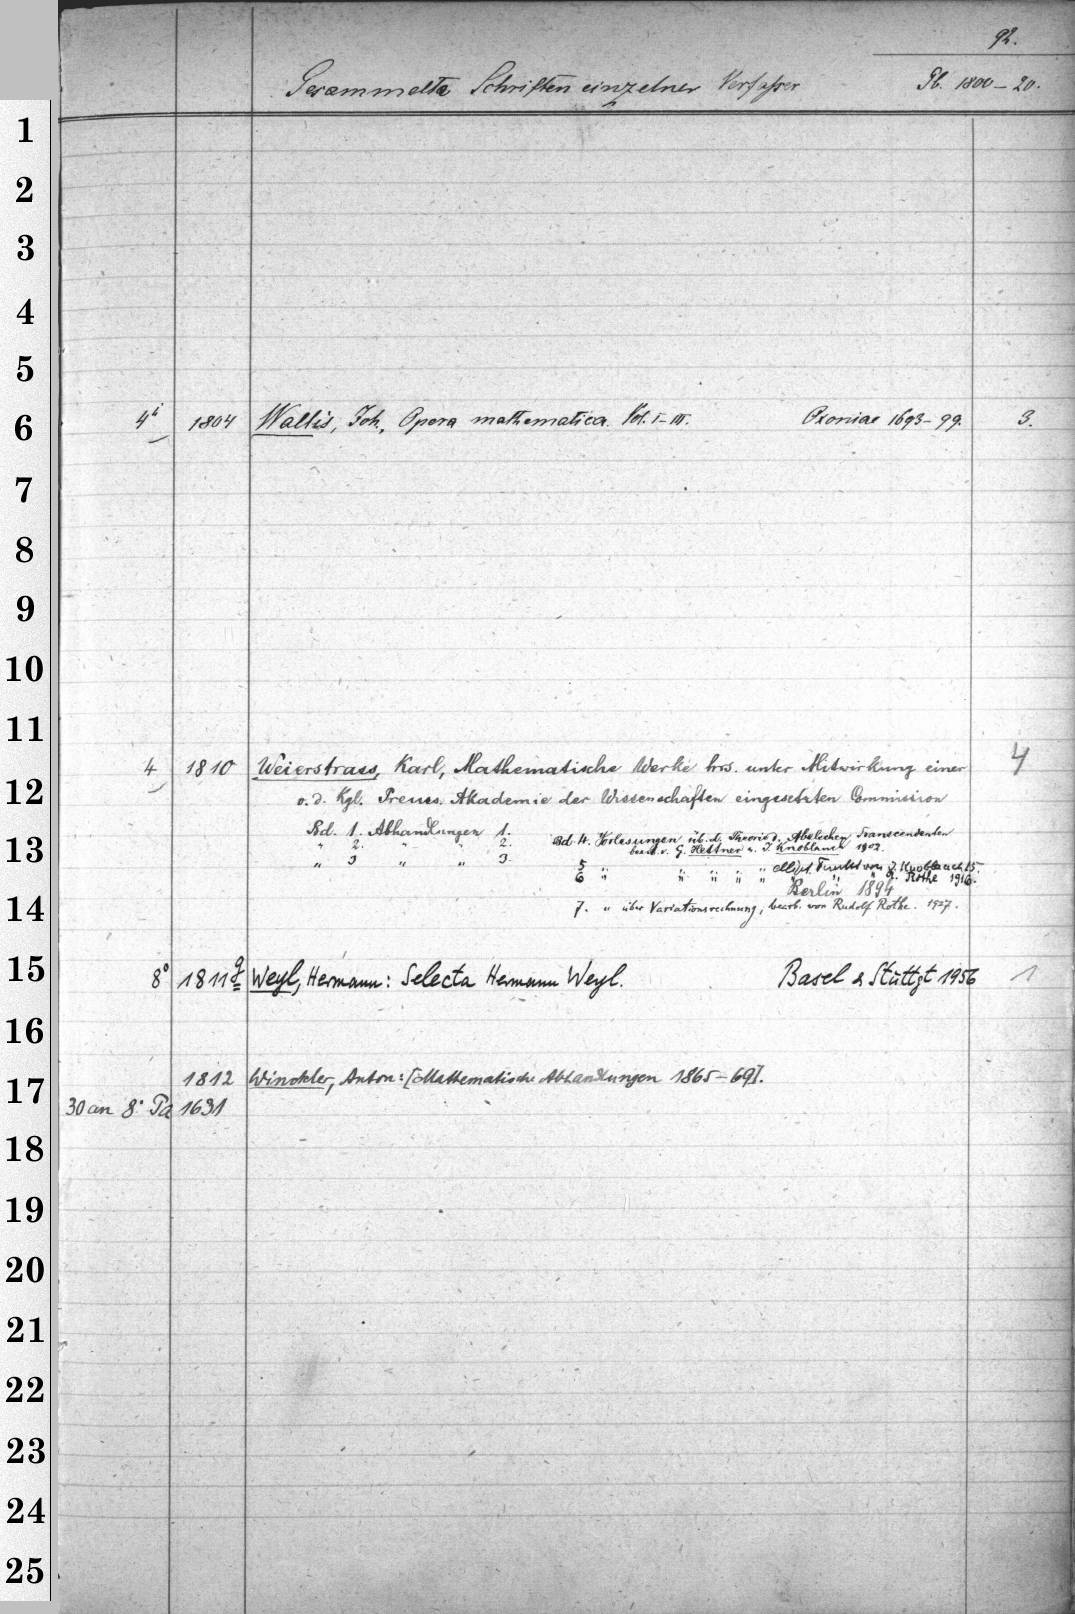 92.
Gesammelte Schriften einzelner Verfasser Pb. 1800-20.
1
2
3
4
5
6 4° 1804 Wallis, Joh., Opera mathematica. Vol. I-III. Oxoniae 1693-99. 3.
7
8
9
10
11
4 1810 Weierstrass, Karl, Mathematische Werke hrs. unter Mitwirkung einer 4
12 v. d. Kgl. Preuss. Akademie der Wissenschaften eingesetzten Commission
Bd. 1. Abhandlungen 1.
" 2. " " 2. Bd. 4. Vorlesungen üb. d. Theorie d. Abelschen Transcendenten
13 bearb. v. G. Hettner u. J. Knoblauch 1902.
" 3 " " 3
5 " " " " " Funkt von J. Knoblauch 15.
6 " " " " " " " R. Rothe 1916.
Berlin 1894
14 7. " über Variationsrechnung, bearb. von Rudolf Rothe. 1927.
15 8° 1811g Weyl, Hermann: Selecta Hermann Weyl. Basel & Stuttgt 1956 1
16
1812 Winckler, Anton: [Mathematische Abhandlungen 1865-69].
17
30 an 8° Pa 1631
18
19
20
21
22
23
24
25